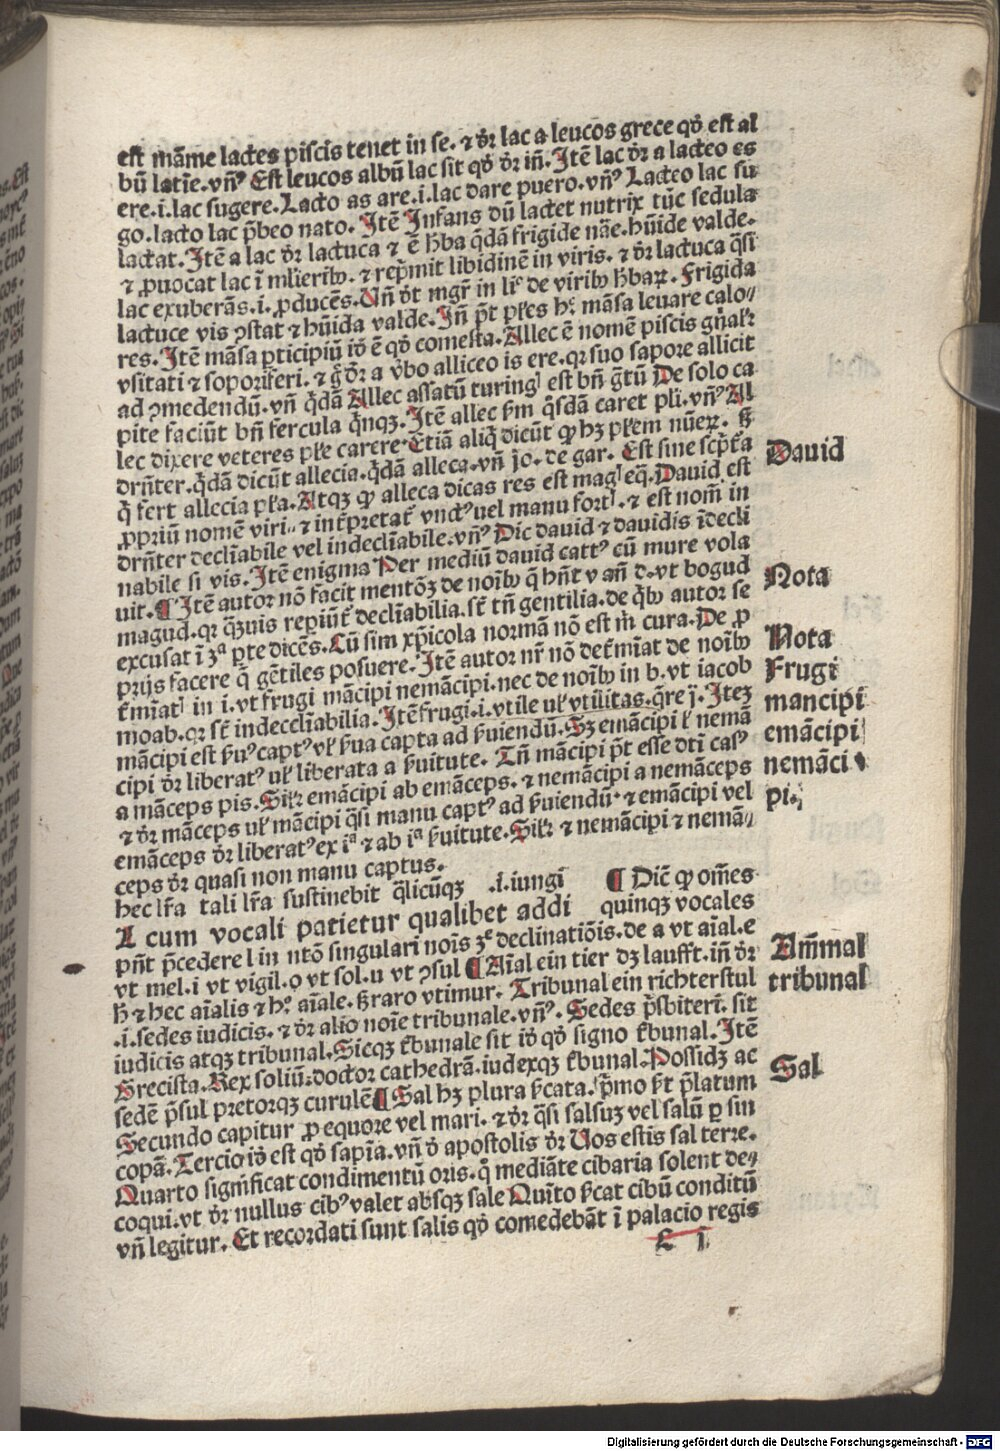 est mãme lactes piscis tenet in se. ⁊ dr̄ lac a leucos grece qđ est al
bũ latĩe. vnꝰ Est leucos albũ lac sit qđ dr̄ iñ. Itẽ lac dr̄ a lacteo es
ere .i. lac sugere. Lacto as are .i. lac dare puero. vnꝰ Lacteo lac su
go. lacto lac p̃beo nato. Itẽ Infans dũ lactet nutrix tũc sedula
lactat. Itẽ a lac dr̄ lactuca ⁊ ẽ h̃ba q̃dã frigide nãe. hũide valde.
⁊ ꝓuocat lac ĩ ml̕ierib. ⁊ rep̃mit libidinẽ in viris. ⁊ dr̄ lactuca q̃si
lac exuberãs .i. ꝓducẽs. Vñ dt̄ mgr̃ in li̕ de virib h̃baꝝ. Frigida
lactuce vis ꝯstat ⁊ hũida valde. Iñ pt̃ pl̕es hꝰ mãsa leuare calo⸗
res. Itẽ mãsa ꝑticipiũ iđ ẽ qđ comesta. Allec ẽ nomẽ piscis gñal̕r
vsitati ⁊ soporif̕eri. ⁊ g̃ dr̄ a v̕bo alliceo is ere. qr suo sapore allicit
ad ꝯmedendũ. vñ q̃dã Allec assatũ turing̕ est bñ gr̃tũ De solo ca
pite faciũt bñ fercula q̃nqꝫ. Itẽ allec ẜm q̃sdã caret pli. vnꝰ Al
lec dixere veteres pl̕e carere. Etiã aliq̃ dicũt ꝙ hꝫ pl̕em nũeꝝ. ꝫ
dr̃nter. q̃dã dicũt allecia. q̃dã alleca. vñ jo. de gar. Est sine scp̃t̕a
q̃ fert allecia pl̕a. Atqꝫ ꝙ alleca dicas res est mag̕ eq̃. Dauid est
ꝓpriũ nomẽ viri. ⁊ int̃pretat̕ vnctꝰ uel manu fort̕. ⁊ est nom̃ in
dr̃nter declĩabile vel indeclĩabile. vnꝰ Dic dauid ⁊ dauidis ĩdecli
nabile si vis. Itẽ enigma Per mediũ dauid cattꝰ cũ mure vola
uit. ¶ Itẽ autor nõ facit mentõꝫ de noĩb q̃ hñt v añ d. vt bogud
magud. qr q̃ꝫuis reꝑiũt̕ declĩabilia. st̃ tñ gentilia. de q̃b autor se
excusat ĩ ꝫª ꝑte dicẽs. Cũ sim xp̃icola normã nõ est m̃ cura. De ꝓ
prijs facere q̃ gẽtiles posuere. Itẽ autor nr̃ nõ det̃mĩat de noĩb
t̃mĩat̕ in i. vt frugi mãcipi nemãcipi. nec de noĩb in b. vt iacob
moab. qr st̃ indeclĩabilia. Itẽ frugi .i. vtile ul̕ vtilitas. q̃re j̃. Iteꝫ
mãcipi est ẜuꝰ captꝰ vl̕ ẜua capta ad ẜuiendũ. Sꝫ emãcipi l̕ nemã
cipi dr̄ liberatꝰ ul̕ liberata a ẜuitute. Tñ mãcipi pt̃ esse dtĩ casꝰ
a mãceps pis. Sil̕r emãcipi ab emãceps. ⁊ nemãcipi a nemãceps
⁊ dr̄ mãceps ul̕ mãcipi q̃si manu captꝰ ad ẜuiendũ. ⁊ emãcipi vel
emãceps dr̄ liberatꝰ ex iª ⁊ ab iª ẜuitute. Sil̕r ⁊ nemãcipi ⁊ nemã⸗
ceps dr̄ quasi non manu captus.
hec lr̃a tali lr̃a sustinebit q̃licũqꝫ .i. iungi ¶ Dicẽ ꝙ om̃es
L cum vocali patietur qualibet addi quinqꝫ vocales
pñt p̃cedere l in ntõ singulari noĩs ꝫe declinatiõis. de a vt aĩal. e
vt mel. i vt vigil. o vt sol. u vt ꝯsul ¶ Aĩal ein tier dꝫ laufft. iñ dr̄
h̃ ⁊ hec aĩalis ⁊ hꝰ aĩale. ꝫ raro vtimur. Tribunal ein richterstul
.i. sedes iudicis. ⁊ dr̄ alio noĩe tribunale. vnꝰ. Sedes p̃sbiteri. sit
iudicis atqꝫ tribunal. Sicqꝫ t̕bunale sit iđ qđ signo t̕bunal. Itẽ
Grecista. Rex soliũ. doctor cathedrã. iudexqꝫ t̕bunal. Possidꝫ ac
sedẽ p̃sul pretorqꝫ curulẽ ¶ Sal hꝫ plura ẜcata. p̃mo ẜt p̃latum
Secundo capitur ꝓ equore vel mari. ⁊ dr̄ q̃si salsuꝫ vel salũ ꝑ sin
copã. Tercio iđ est qđ sapĩa. vñ đ apostolis dr̄ Uos estis sal terre.
Quarto significat condimentũ oris. q̃ mediãte cibaria solent de⸗
coqui. vt dr̄ nullus cibꝰ valet absqꝫ sale Quĩto ẜcat cibũ conditũ
vñ legitur. Et recordati sunt salis qđ comedebãt ĩ palacio regis
L 1
Dauid
Nota
Nota
Frugi
mancipi
emãcipi
nemãci
pi.
Anĩmal
tribunal
Sal
Digitalisierung gefördert durch die Deutsche Forschungsgemeinschaft - DFG